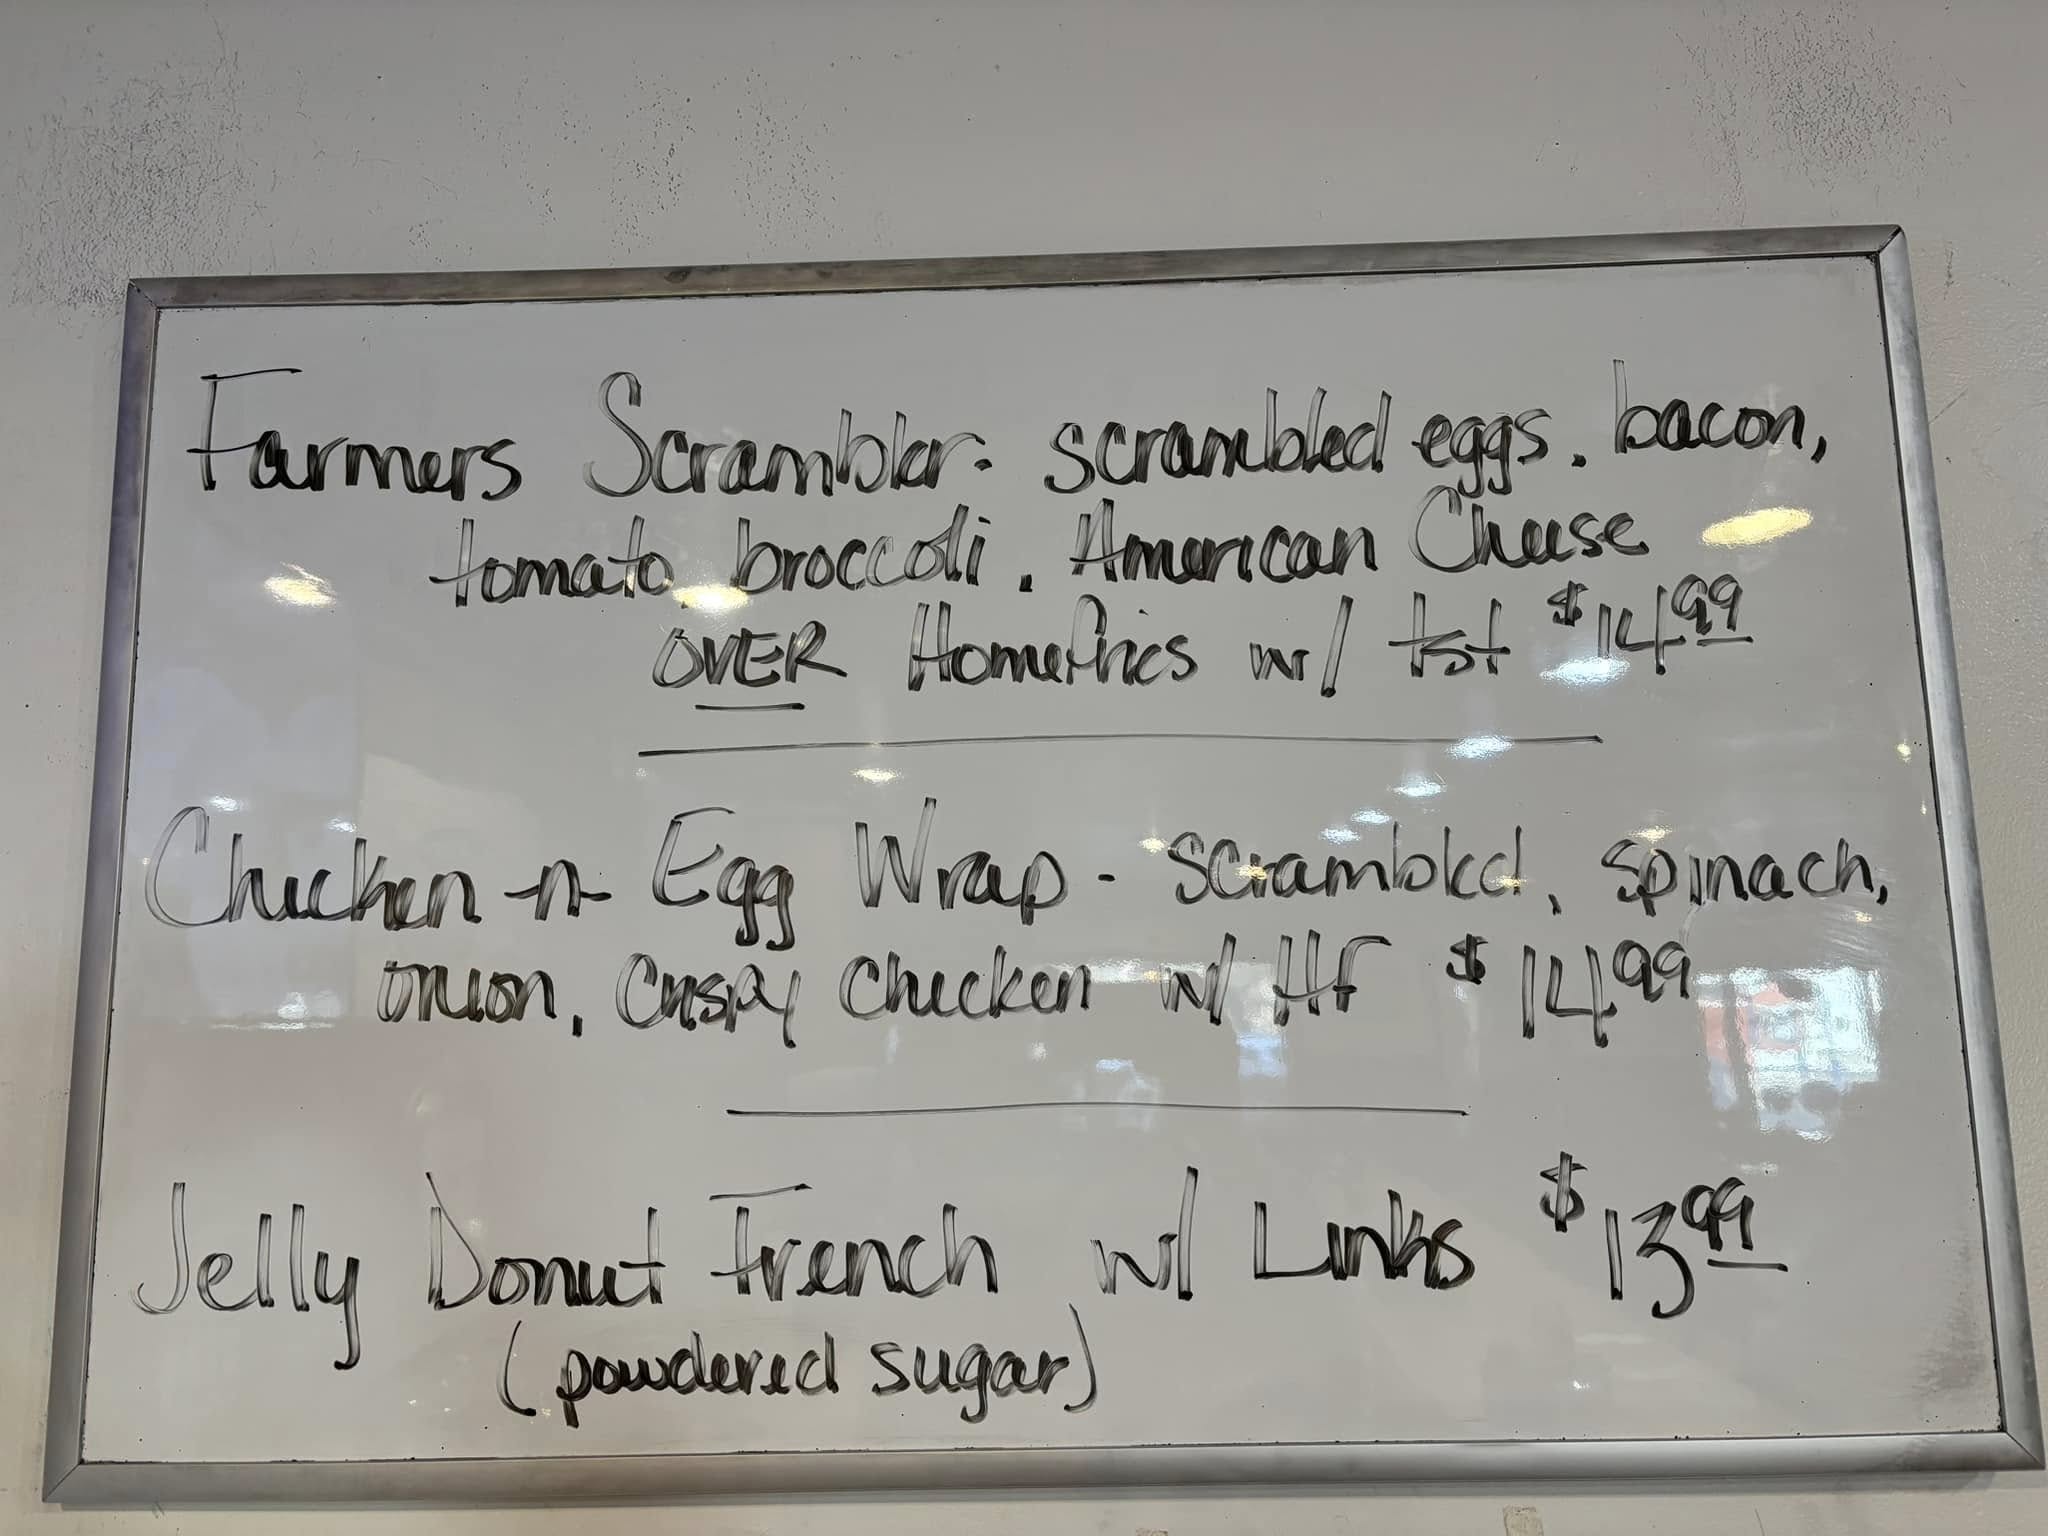 Farmers Scrambler- scrambled eggs, bacon,
tomato, broccoli, American Cheese
OVER Homefries w/ tst $14.99
Chicken-n-Egg Wrap - scrambled, spinach,
onion, Crispy Chicken w/ Hf $14.99
Jelly Donut French w/ Links $13.99
(powdered sugar)